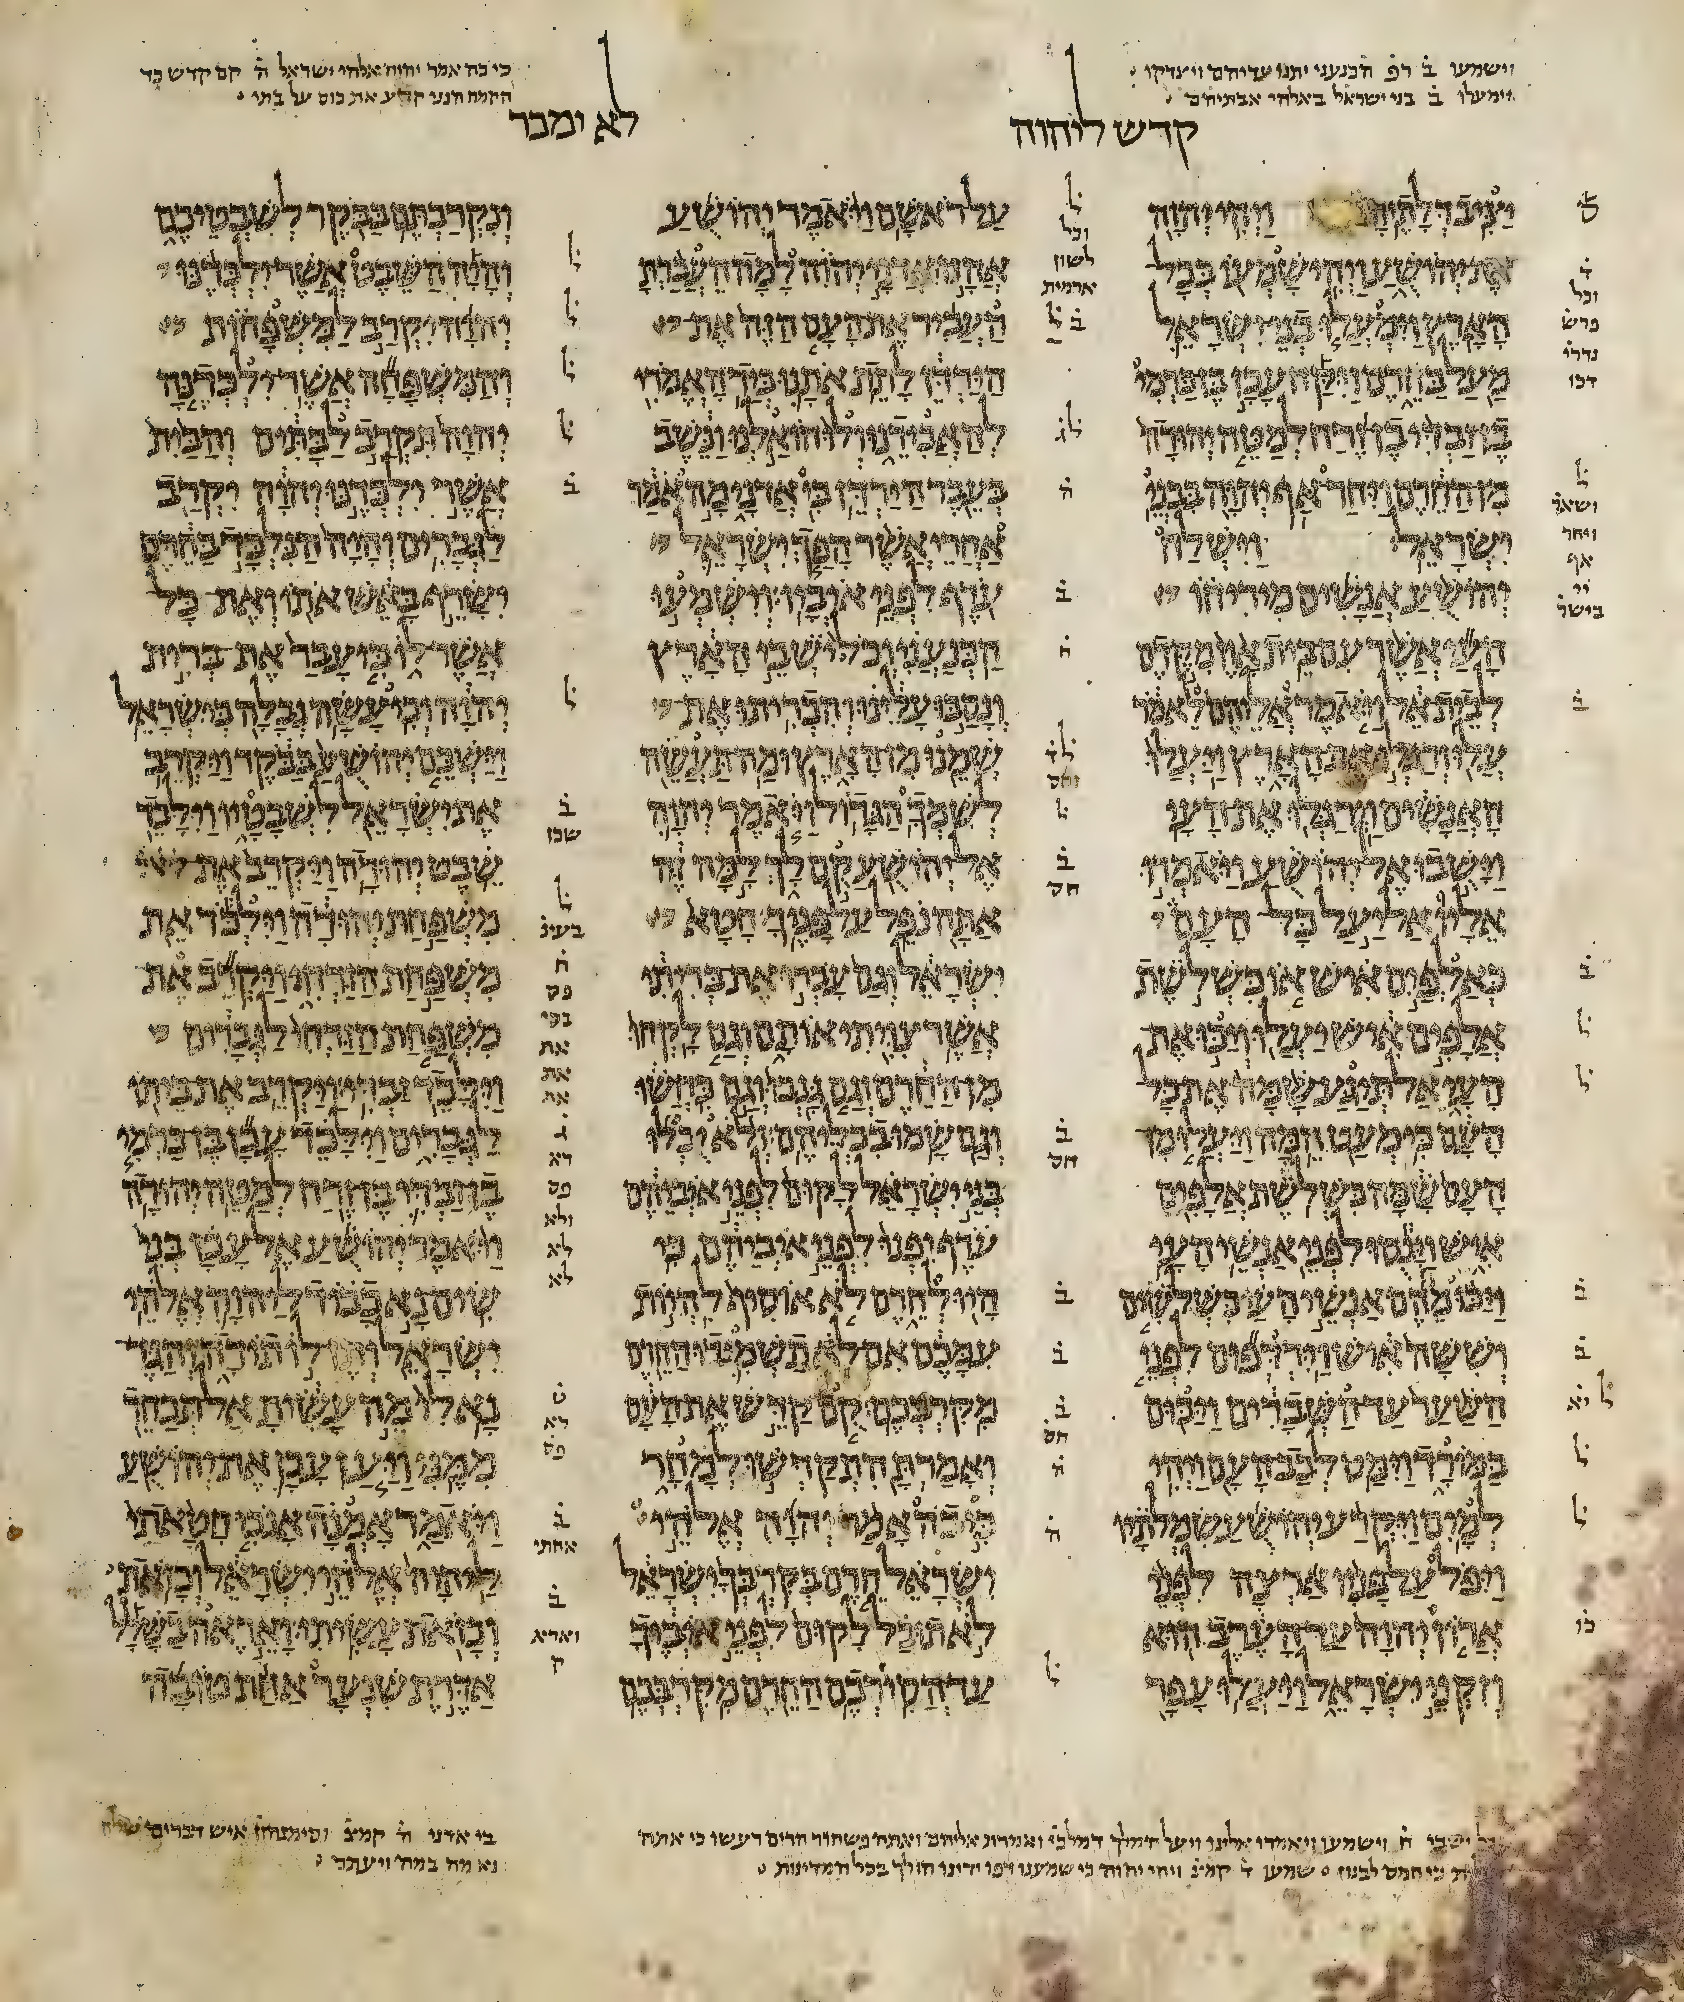 וישמעו ב̇ רפ̇ הכנעני יתנו עדיהם ויצדקו
וימעלו ב̇ בני ישראל באלהי אבתיהם
כי כה אמר יהוה אלהי ישראל ה̇
את כוס על בתי
קדש ליהוה
לא ימכר
יציב דלתיה ויהי יהוה
את יהושע ויהי שמעו בכל
הארץ וימעלו בני ישראל
מעל בחרם ויקח עכן בן כרמי
בן זבדי בן זרח למטה יהודה
מן החרם ויחר אף יהוה בבני
ישראל׃ וישלח
יהושע אנשים מיריחו
העי אשר עם בית און מקדם
לבית אל ויאמר אליהם לאמר
עלו ורגלו את הארץ ויעלו
האנשים וירגלו את העי׃
וישבו אל יהושע ויאמרו
אליו אל יעל כל העם
כאלפים איש או כשלשת
אלפים איש יעלו ויכו את
העי אל תיגע שמה את כל
העם כי מעט המה׃ ויעלו מן
העם שמה כשלשת אלפים
איש וינסו לפני אנשי העי׃
ויכו מהם אנשי העי כשלשים
וששה איש וירדפום לפני
השער עד השברים ויכום
במורד וימס לבב העם ויהי
למים׃ ויקרע יהושע שמלתיו
ויפל על פניו ארצה לפני
ארון יהוה עד הערב הוא
וזקני ישראל ויעלו עפר
על ראשם׃ ויאמר יהושע
אהה אדני יהוה למה העברת
העביר את העם הזה את
הירדן לתת אתנו ביד האמרי
להאבידנו ולו הואלנו ונשב
בעבר הירדן׃ בי אדני מה אמר
אחרי אשר הפך ישראל
ערף לפני איביו׃ וישמעו
הכנעני וכל ישבי הארץ
ונסבו עלינו והכריתו את
שמנו מן הארץ ומה תעשה
לשמך הגדול׃ ויאמר יהוה
אל יהושע קם לך למה זה
אתה נפל על פניך׃ חטא
ישראל וגם עברו את בריתי
אשר צויתי אותם וגם לקחו
מן החרם וגם גנבו וגם כחשו
וגם שמו בכליהם׃ ולא יכלו
בני ישראל לקום לפני איביהם
ערף יפנו לפני איביהם כי
היו לחרם לא אוסיף להיות
עמכם אם לא תשמידו החרם
מקרבכם׃ קם קדש את העם
ואמרת התקדשו למחר
כי כה אמר יהוה אלהי
ישראל חרם בקרבך ישראל
לא תוכל לקום לפני איביך
עד הסירכם החרם מקרבכם׃
ונקרבתם בבקר לשבטיכם
והיה השבט אשר ילכדנו
יהוה יקרב למשפחות
והמשפחה אשר ילכדנה
יהוה תקרב לבתים והבית
אשר ילכדנו יהוה יקרב
לגברים׃ והיה הנלכד בחרם
ישרף באש אתו ואת כל
אשר לו כי עבר את ברית
יהוה וכי עשה נבלה בישראל׃
וישכם יהושע בבקר ויקרב
את ישראל לשבטיו וילכד
שבט יהודה׃ ויקרב את
משפחת יהודה וילכד את
משפחת הזרחי ויקרב את
משפחת הזרחי לגברים
וילכד זבדי׃ ויקרב את ביתו
לגברים וילכד עכן בן כרמי
בן זבדי בן זרח למטה יהודה׃
ויאמר יהושע אל עכן בני
שים נא כבוד ליהוה אלהי
ישראל ותן לו תודה והגד
נא לי מה עשית אל תכחד
ממני׃ ויען עכן את יהושע
ויאמר אמנה אנכי חטאתי
ליהוה אלהי ישראל וכזאת
וכזאת עשיתי׃ ואראה בשלל
אדרת שנער אחת טובה
ישבי ה̇ וישמעו ויאמרו אלינו ויעל המלך
שמעו ד̇ קמצ̇ ויהי יהוה כי שמענו ידינו הולך בכל המדינות
בי אדני ה̇ קמצ̇ וסימנהון איש דברים
נא מה במה